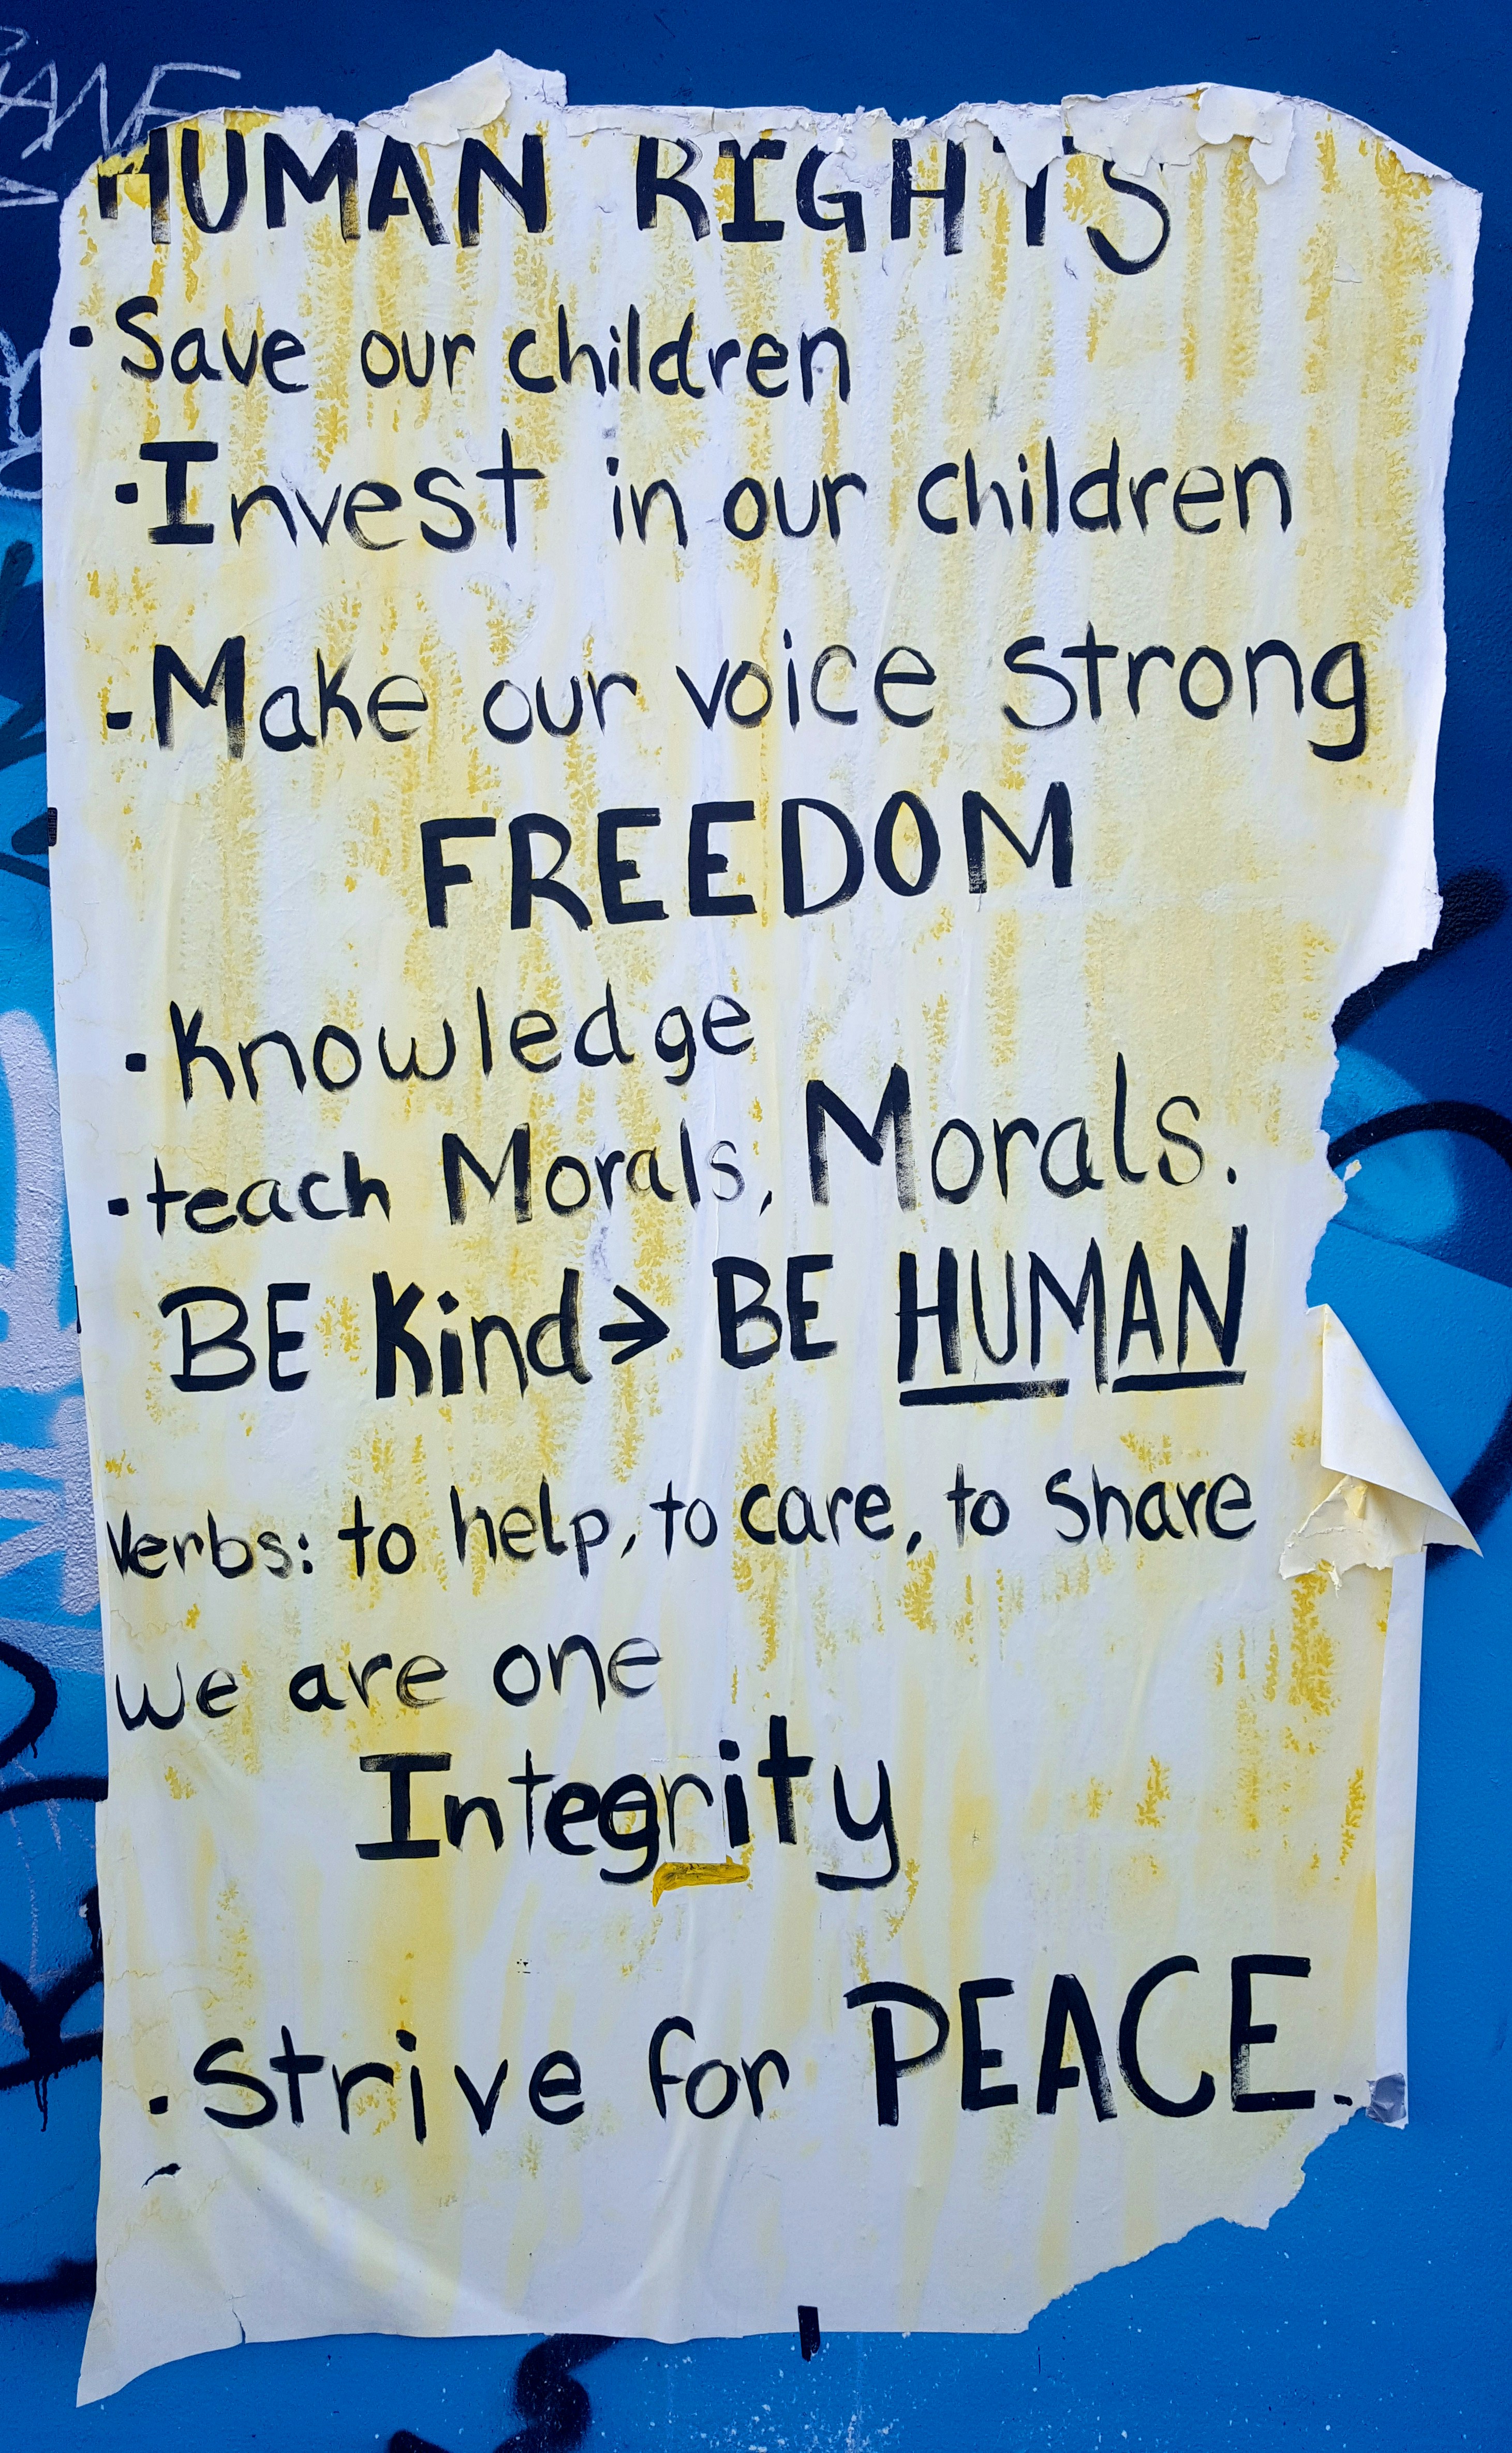 HUMAN RIGHTS
· Save our children
· Invest in our children
- Make our voice strong
FREEDOM
· Knowledge
· teach Morals, Morals.
BE Kind → BE HUMAN
Verbs: to help, to care, to share
we are one
Integrity
· Strive for PEACE.